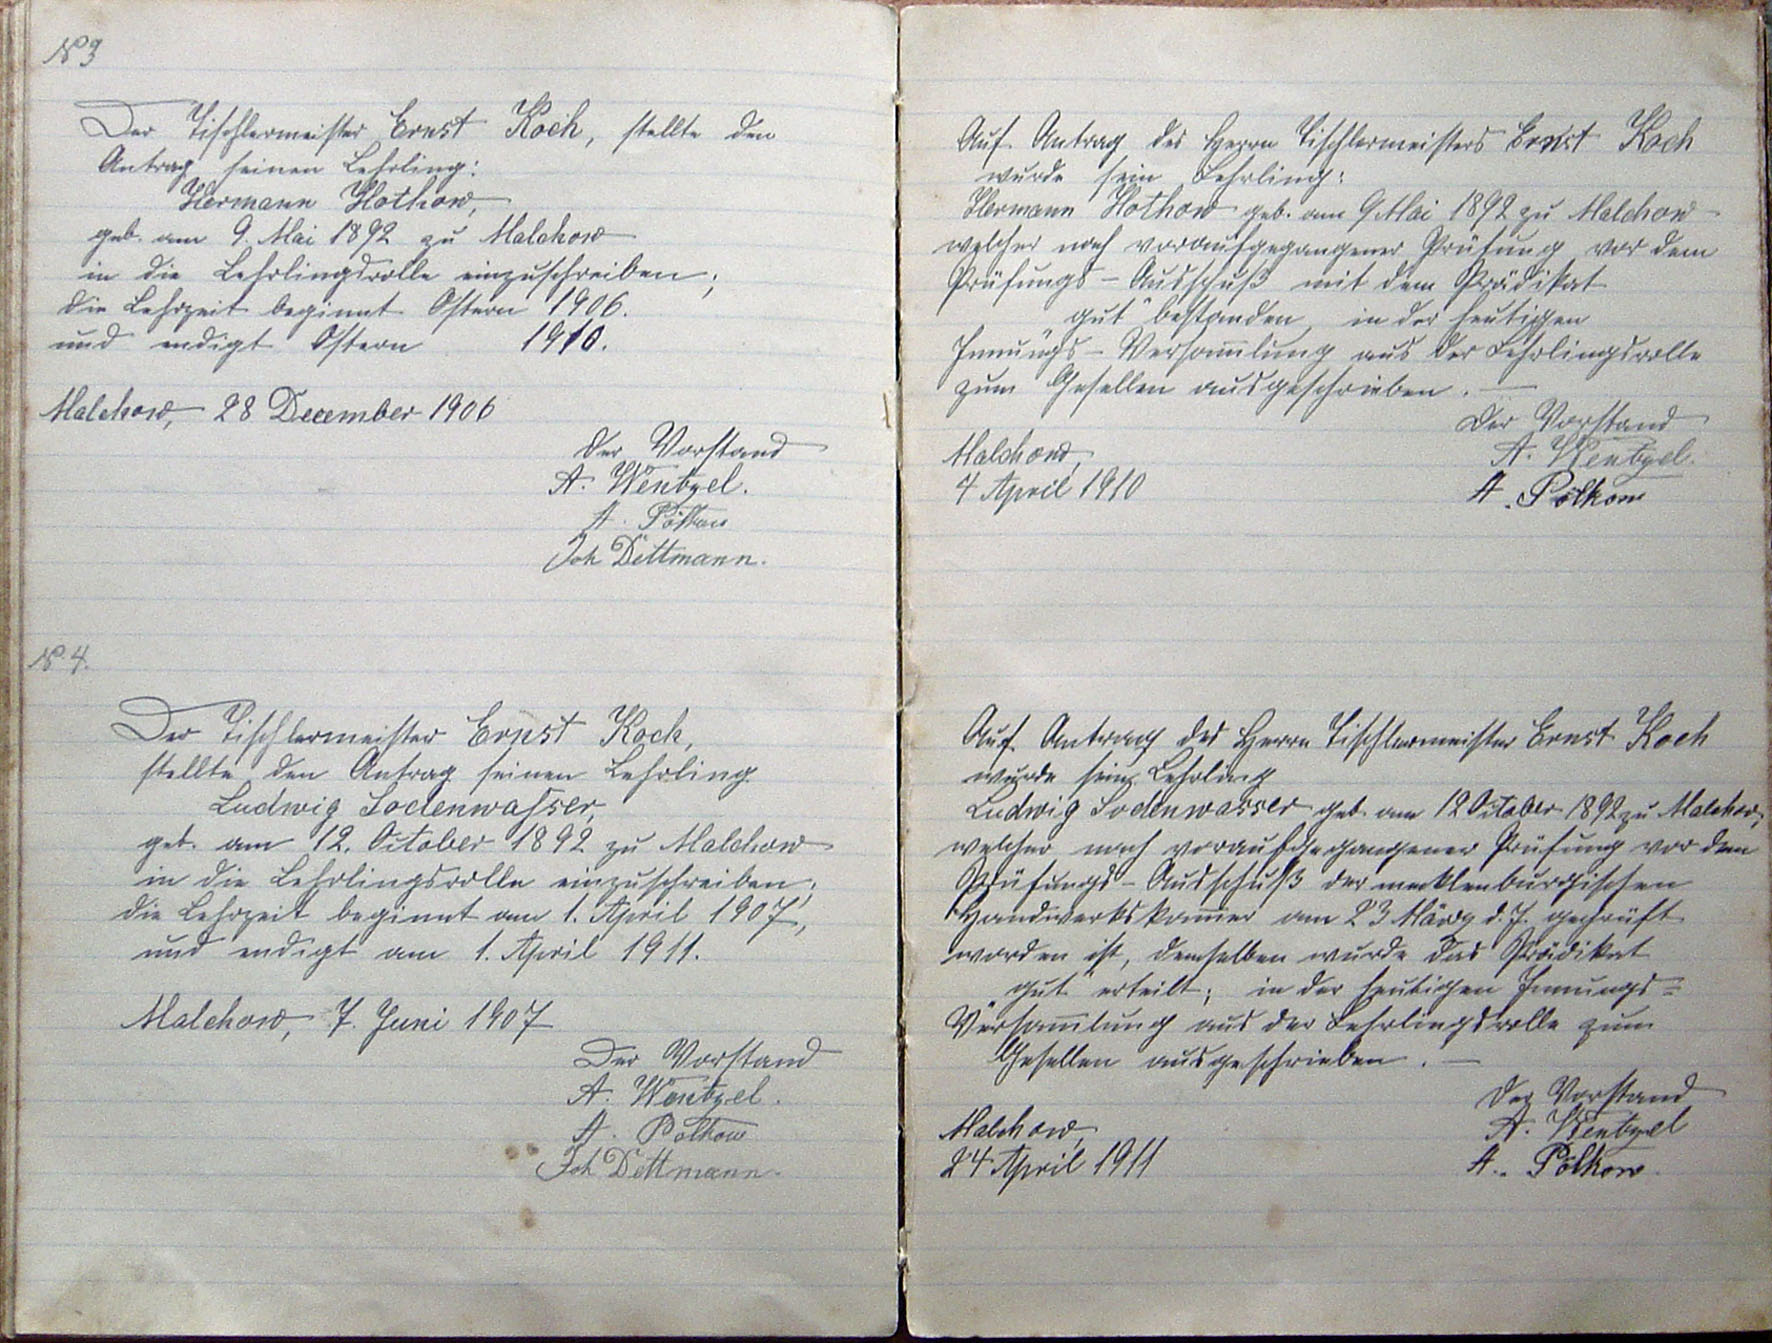 No 3
Der Tischlermeister Ernst Koch, stellte den
Antrag seinen Lehrling:
Hermann Hothow,
geb. am 9. Mai 1892 zu Malchow
in die Lehrlingsrolle einzuschreiben;
die Lehrzeit beginnt Ostern 1906.
und endigt Ostern 1910.
Malchow, 28 December 1906
Der Vorstand
A. Wentzel.
A. Pölkow
Joh Dettmann.
No. 4.
Der Tischlermeister Ernst Koch,
stellte den Antrag seinen Lehrling
Ludwig Sodenwasser,
geb. am 12. October 1892 zu Malchow
in die Lehrlingsrolle einzuschreiben;
die Lehrzeit beginnt am 1. April 1907,
und endigt am 1. April 1911.
Malchow, 7. Juni 1907
Der Vorstand
A. Wentzel.
A. Pölkow
Joh Dettmann.
Auf Antrag des Herrn Tischlermeisters Ernst Koch
wurde sein Lehrling:
Hermann Hothow geb. am 9 Mai 1892 zu Malchow
welcher nach voraufgegangener Prüfung vor dem
Prüfungs-Ausschuß mit dem Prädikat
"gut" bestanden, in der heutigen
Innungs-Versam̄lung aus der Lehrlingsrolle
zum Gesellen ausgeschrieben. —
Der Vorstand
Malchow,
A. Wentzel.
4 April 1910
A. Pölkow
Auf Antrag des Herrn Tischlermeister Ernst Koch
wurde sein Lehrling
Ludwig Sodenwasser geb. am 12 October 1892 zu Malchow,
welcher nach voraufgegangener Prüfung vor dem
Prüfungs-Ausschuß der mecklenburgischen
Handwerkskam̄er am 23 März d. J. geprüft
worden ist, demselben wurde das Prädikat
"gut" erteilt; in der heutigen Innungs=
Versam̄lung aus der Lehrlingsrolle zum
Gesellen ausgeschrieben. —
Der Vorstand
Malchow,
A. Wentzel
24 April 1911
A. Pölkow